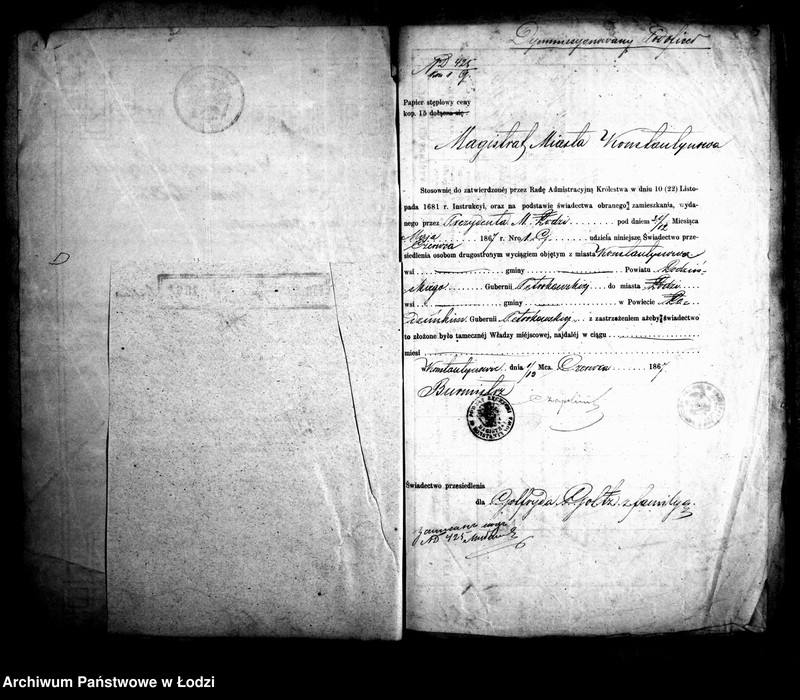 Dymmissyonowany
ND 425
Papier stęplowy ceny
kop. 15 dołącza się
Magistrat Miasta Konstantynowa
Stosownie do zatwierdzonej przez Radę Admistracyjną Królestwa w dniu 10 (22) Listo-
pada 1681 r. Instrukcyi, oraz na podstawie świadectwa obranego zamieszkania, wyda-
nego przez Prezydenta M. Łodzi pod dniem Miesiąca
Maja
Czerwca 1867 r. Nro udziela niniejsze Świadectwo prze-
siedlenia osobom drugostronnym wyciągiem objętym z miasta Konstantynowa
wsi gminy Powiatu Łodziń-
skiego Gubernii Petrokowskiej do miasta Łodzi
wsi gminy w Powiecie Ło-
dzińskim Gubernii Petrokowskiej z zastrzeżeniem ażeby świadectwo
to złożone było tamecznej Władzy miejscowej, najdalej w ciągu
miesi
w Konstantynowie dnia 1/13 Mca Czerwca 1867.
Burmistrz
Świadectwo przesiedlenia
dla Gotfryda Goltz z familyą.
ND 425
Archiwum Państwowe w Łodzi